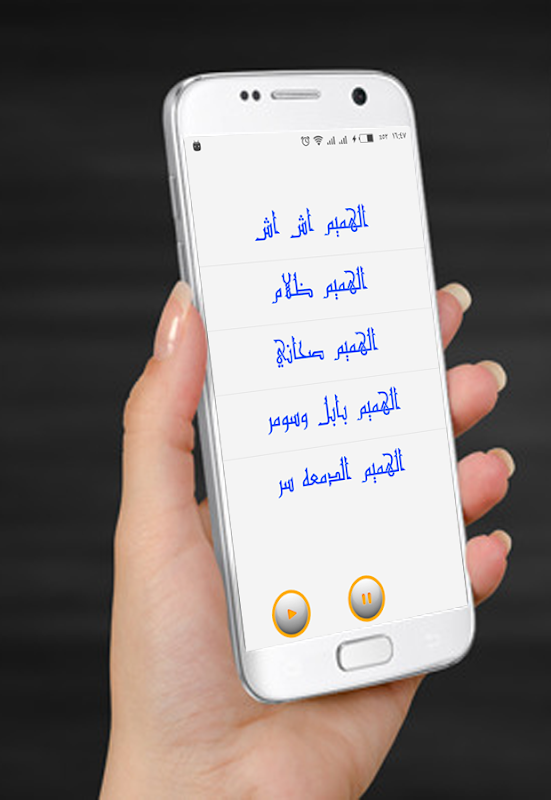 ١٦:٤٧ ٥٥٢
الهميم اش اش
الهميم ظلام
الهميم صحاني
الهميم بابل وسومر
الهميم الدمعه سر